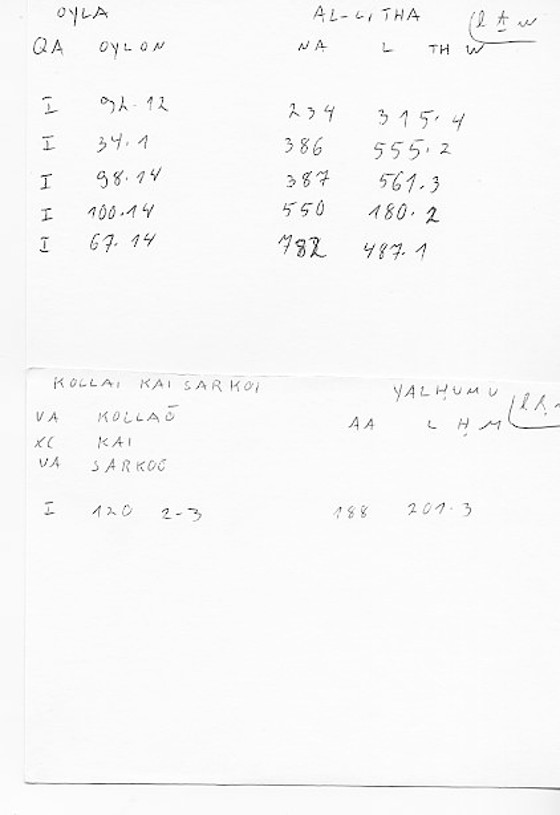 OYLA AL-LITHA
QA OYLON NA L TH W
I 92.12 234 315.4
I 34.1 386 555.2
I 98.14 387 561.3
I 100.14 550 180.2
I 67.14 782 487.1
KOLLAI KAI SARKOI YALḤUMU
VA KOLLAŌ AA L Ḥ M
XC KAI
VA SARKOŌ
I 120 2-3 188 201.3